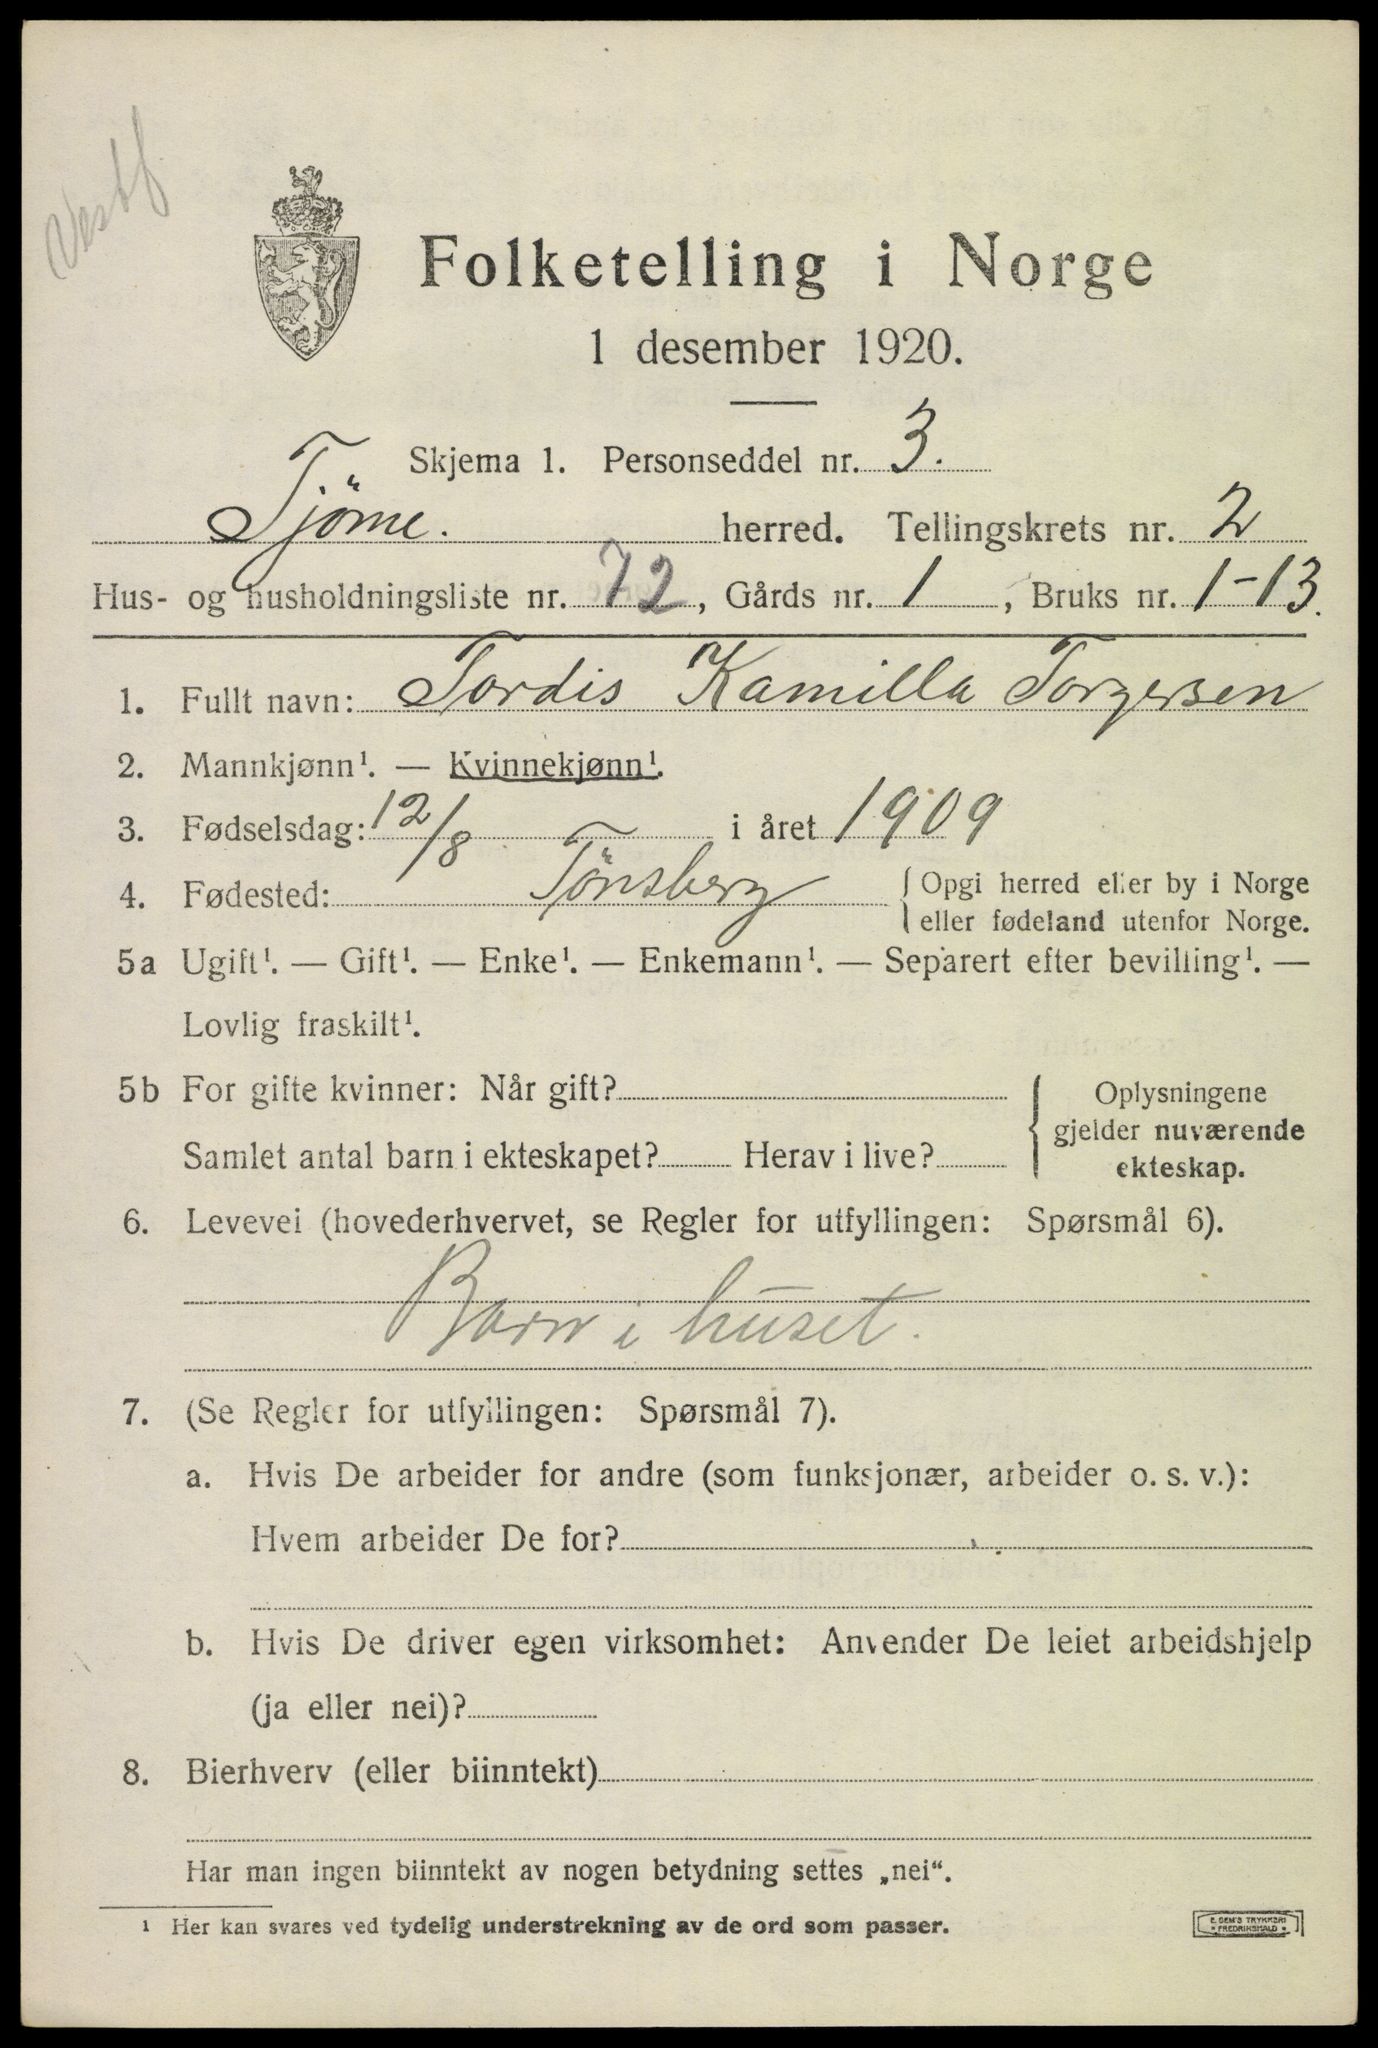 Vestf
Folketelling i Norge
1 desember 1920.
Skjema 1. Personseddel nr. 3.
Tjöme. herred. Tellingskrets nr. 2
Hus- og husholdningsliste nr. 72, Gårds nr. 1, Bruks nr. 1-13.
1. Fullt navn: Tordis Kamilla Torgersen
2. Mannkjønn¹. — Kvinnekjønn¹.
3. Fødselsdag: 12/8 i året 1909
4. Fødested: Tönsberg { Opgi herred eller by i Norge
eller fødeland utenfor Norge.
5a Ugift¹. — Gift¹. — Enke¹. — Enkemann¹. — Separert efter bevilling¹. —
Lovlig fraskilt¹.
5b For gifte kvinner: Når gift? { Oplysningene
gjelder nuværende
Samlet antal barn i ekteskapet? Herav i live? ekteskap.
6. Levevei (hovederhvervet, se Regler for utfyllingen: Spørsmål 6).
Barn i huset.
7. (Se Regler for utfyllingen: Spørsmål 7).
a. Hvis De arbeider for andre (som funksjonær, arbeider o. s. v.):
Hvem arbeider De for?
b. Hvis De driver egen virksomhet: Anvender De leiet arbeidshjelp
(ja eller nei)?
8. Bierhverv (eller biinntekt)
Har man ingen biinntekt av nogen betydning settes „nei“.
¹ Her kan svares ved tydelig understrekning av de ord som passer.
E. DEM'S TRYKKERI
* FREDRIKSHALD *